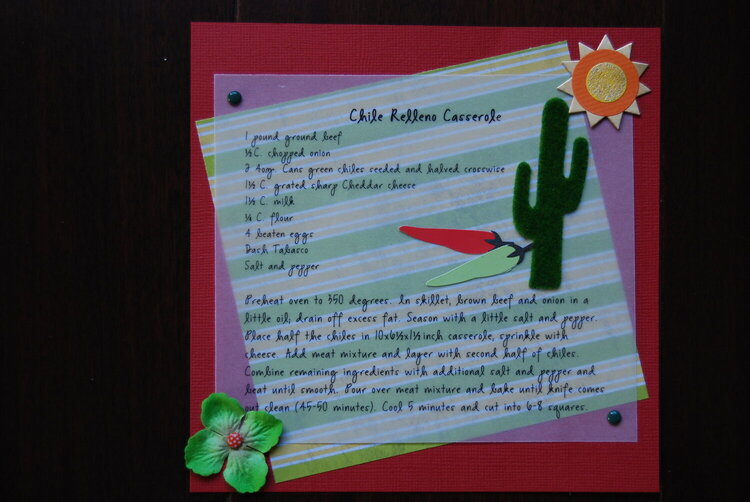 Chile Relleno Casserole
1 pound ground beef
½ C. chopped onion
2 4oz. Cans green chiles seeded and halved crosswise
1½ C. grated sharp Cheddar cheese
1½ C. milk
¼ C flour
4 beaten eggs
Dash Tabasco
Salt and pepper
Preheat oven to 350 degrees. In skillet, brown beef and onion in a
little oil; drain off excess fat. Season with a little salt and pepper.
Place half the chiles in 10x6½x1½ inch casserole, sprinkle with
cheese. Add meat mixture and layer with second half of chiles.
Combine remaining ingredients with additional salt and pepper and
beat until smooth. Pour over meat mixture and bake until knife comes
out clean (45-50 minutes). Cool 5 minutes and cut into 6-8 squares.